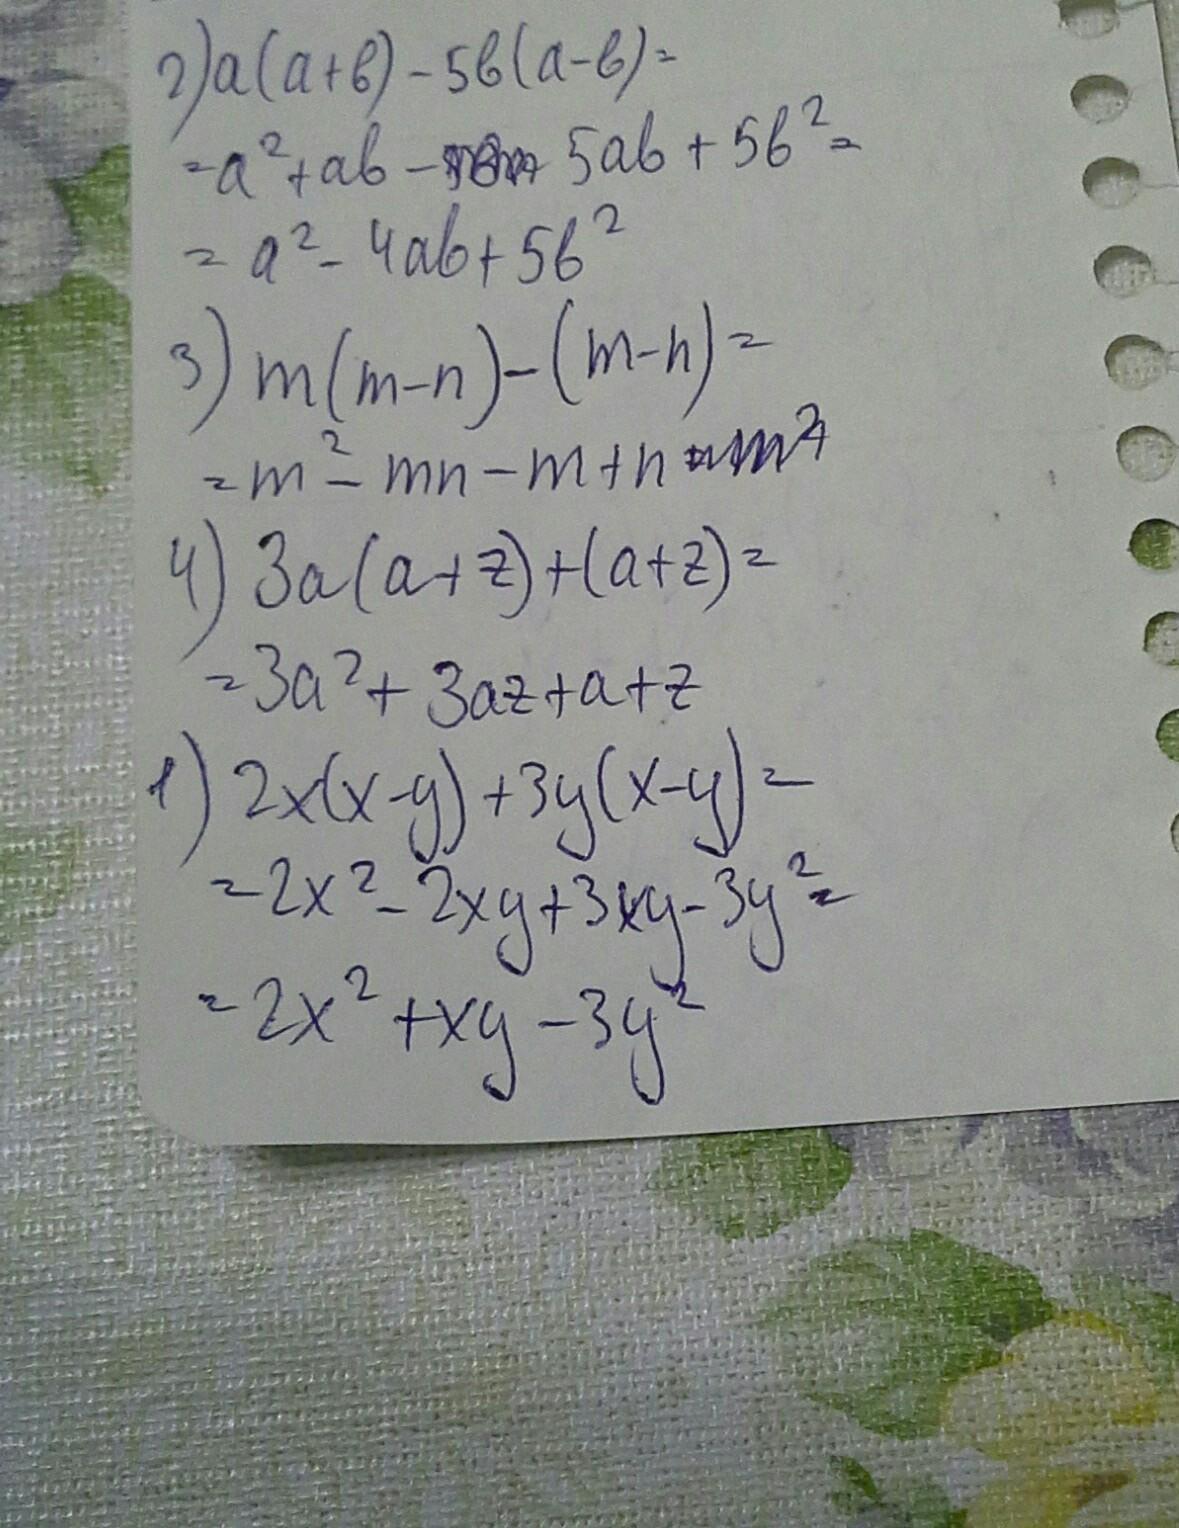 2) a(a+b)-5b(a-b)=
=a²+ab- 5ab+5b²=
=a²-4ab+5b²
3) m(m-n)-(m-n)=
=m²-mn-m+n
4) 3a(a+z)+(a+z)=
=3a²+3az+a+z
1) 2x(x-y)+3y(x-y)=
=2x²-2xy+3xy-3y²=
=2x²+xy-3y²